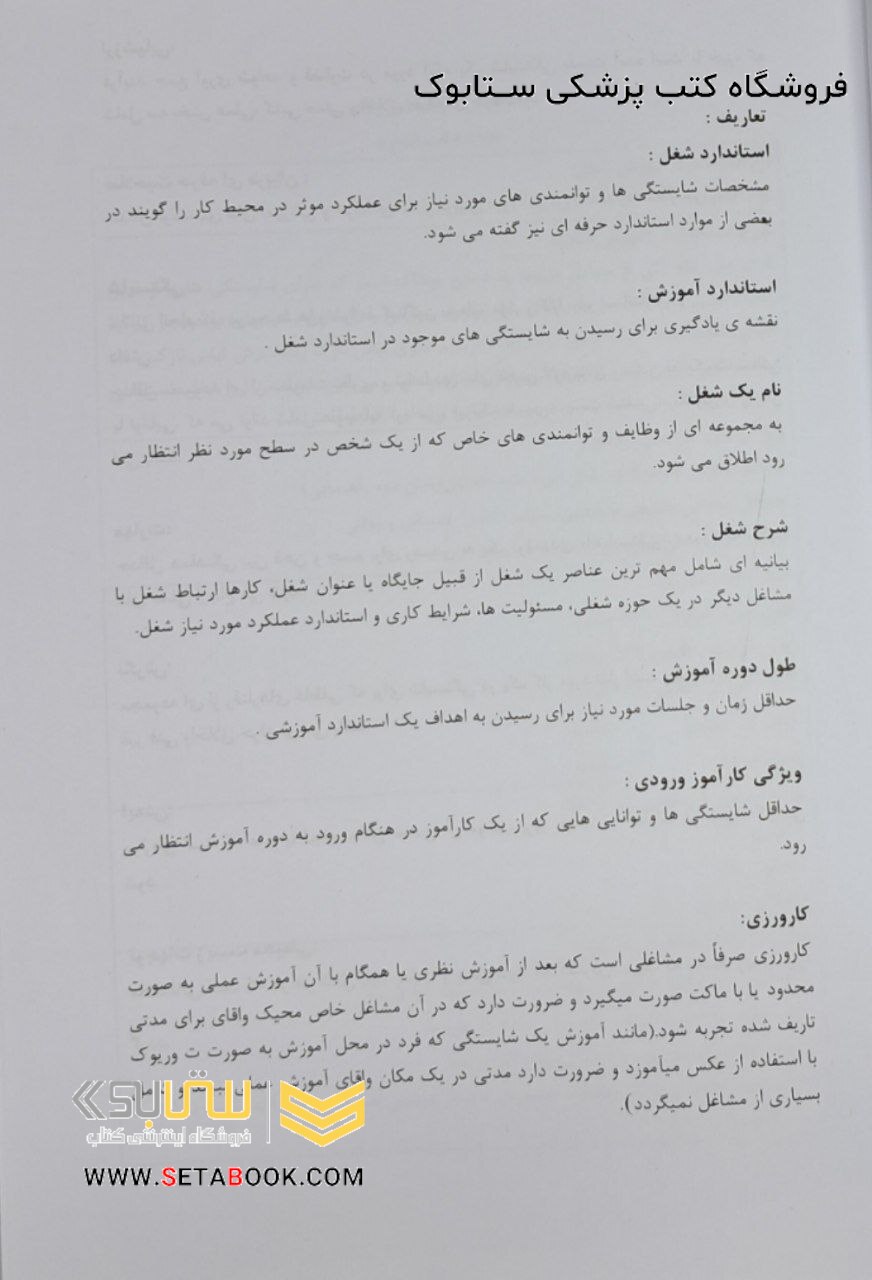 فروشگاه کتب پزشکی ستابوک
تعاریف :
استاندارد شغل :
مشخصات شایستگی ها و توانمندی های مورد نیاز برای عملکرد موثر در محیط کار را گویند در
بعضی از موارد استاندارد حرفه ای نیز گفته می شود.
استاندارد آموزش :
نقشه ی یادگیری برای رسیدن به شایستگی های موجود در استاندارد شغل .
نام یک شغل :
به مجموعه ای از وظایف و توانمندی های خاص که از یک شخص در سطح مورد نظر انتظار می
رود اطلاق می شود.
شرح شغل :
بیانیه ای شامل مهم ترین عناصر یک شغل از قبیل جایگاه یا عنوان شغل، کارها ارتباط شغل با
مشاغل دیگر در یک حوزه شغلی، مسئولیت ها، شرایط کاری و استاندارد عملکرد مورد نیاز شغل.
طول دوره آموزش :
حداقل زمان و جلسات مورد نیاز برای رسیدن به اهداف یک استاندارد آموزشی .
ویژگی کارآموز ورودی :
حداقل شایستگی ها و توانایی هایی که از یک کارآموز در هنگام ورود به دوره آموزش انتظار می
رود.
کارورزی:
کارورزی صرفاً در مشاغلی است که بعد از آموزش نظری یا همگام با آن آموزش عملی به صورت
محدود یا با ماکت صورت میگیرد و ضرورت دارد که در آن مشاغل خاص محیک واقای برای مدتی
تاریف شده تجربه شود.(مانند آموزش یک شایستگی که فرد در محل آموزش به صورت ت وریوک
با استفاده از عکس میآموزد و ضرورت دارد مدتی در یک مکان واقای آموزش عملی
بسیاری از مشاغل نمیگردد).
ستابوک
فروشگاه اینترنتی کتاب
WWW.SETABOOK.COM